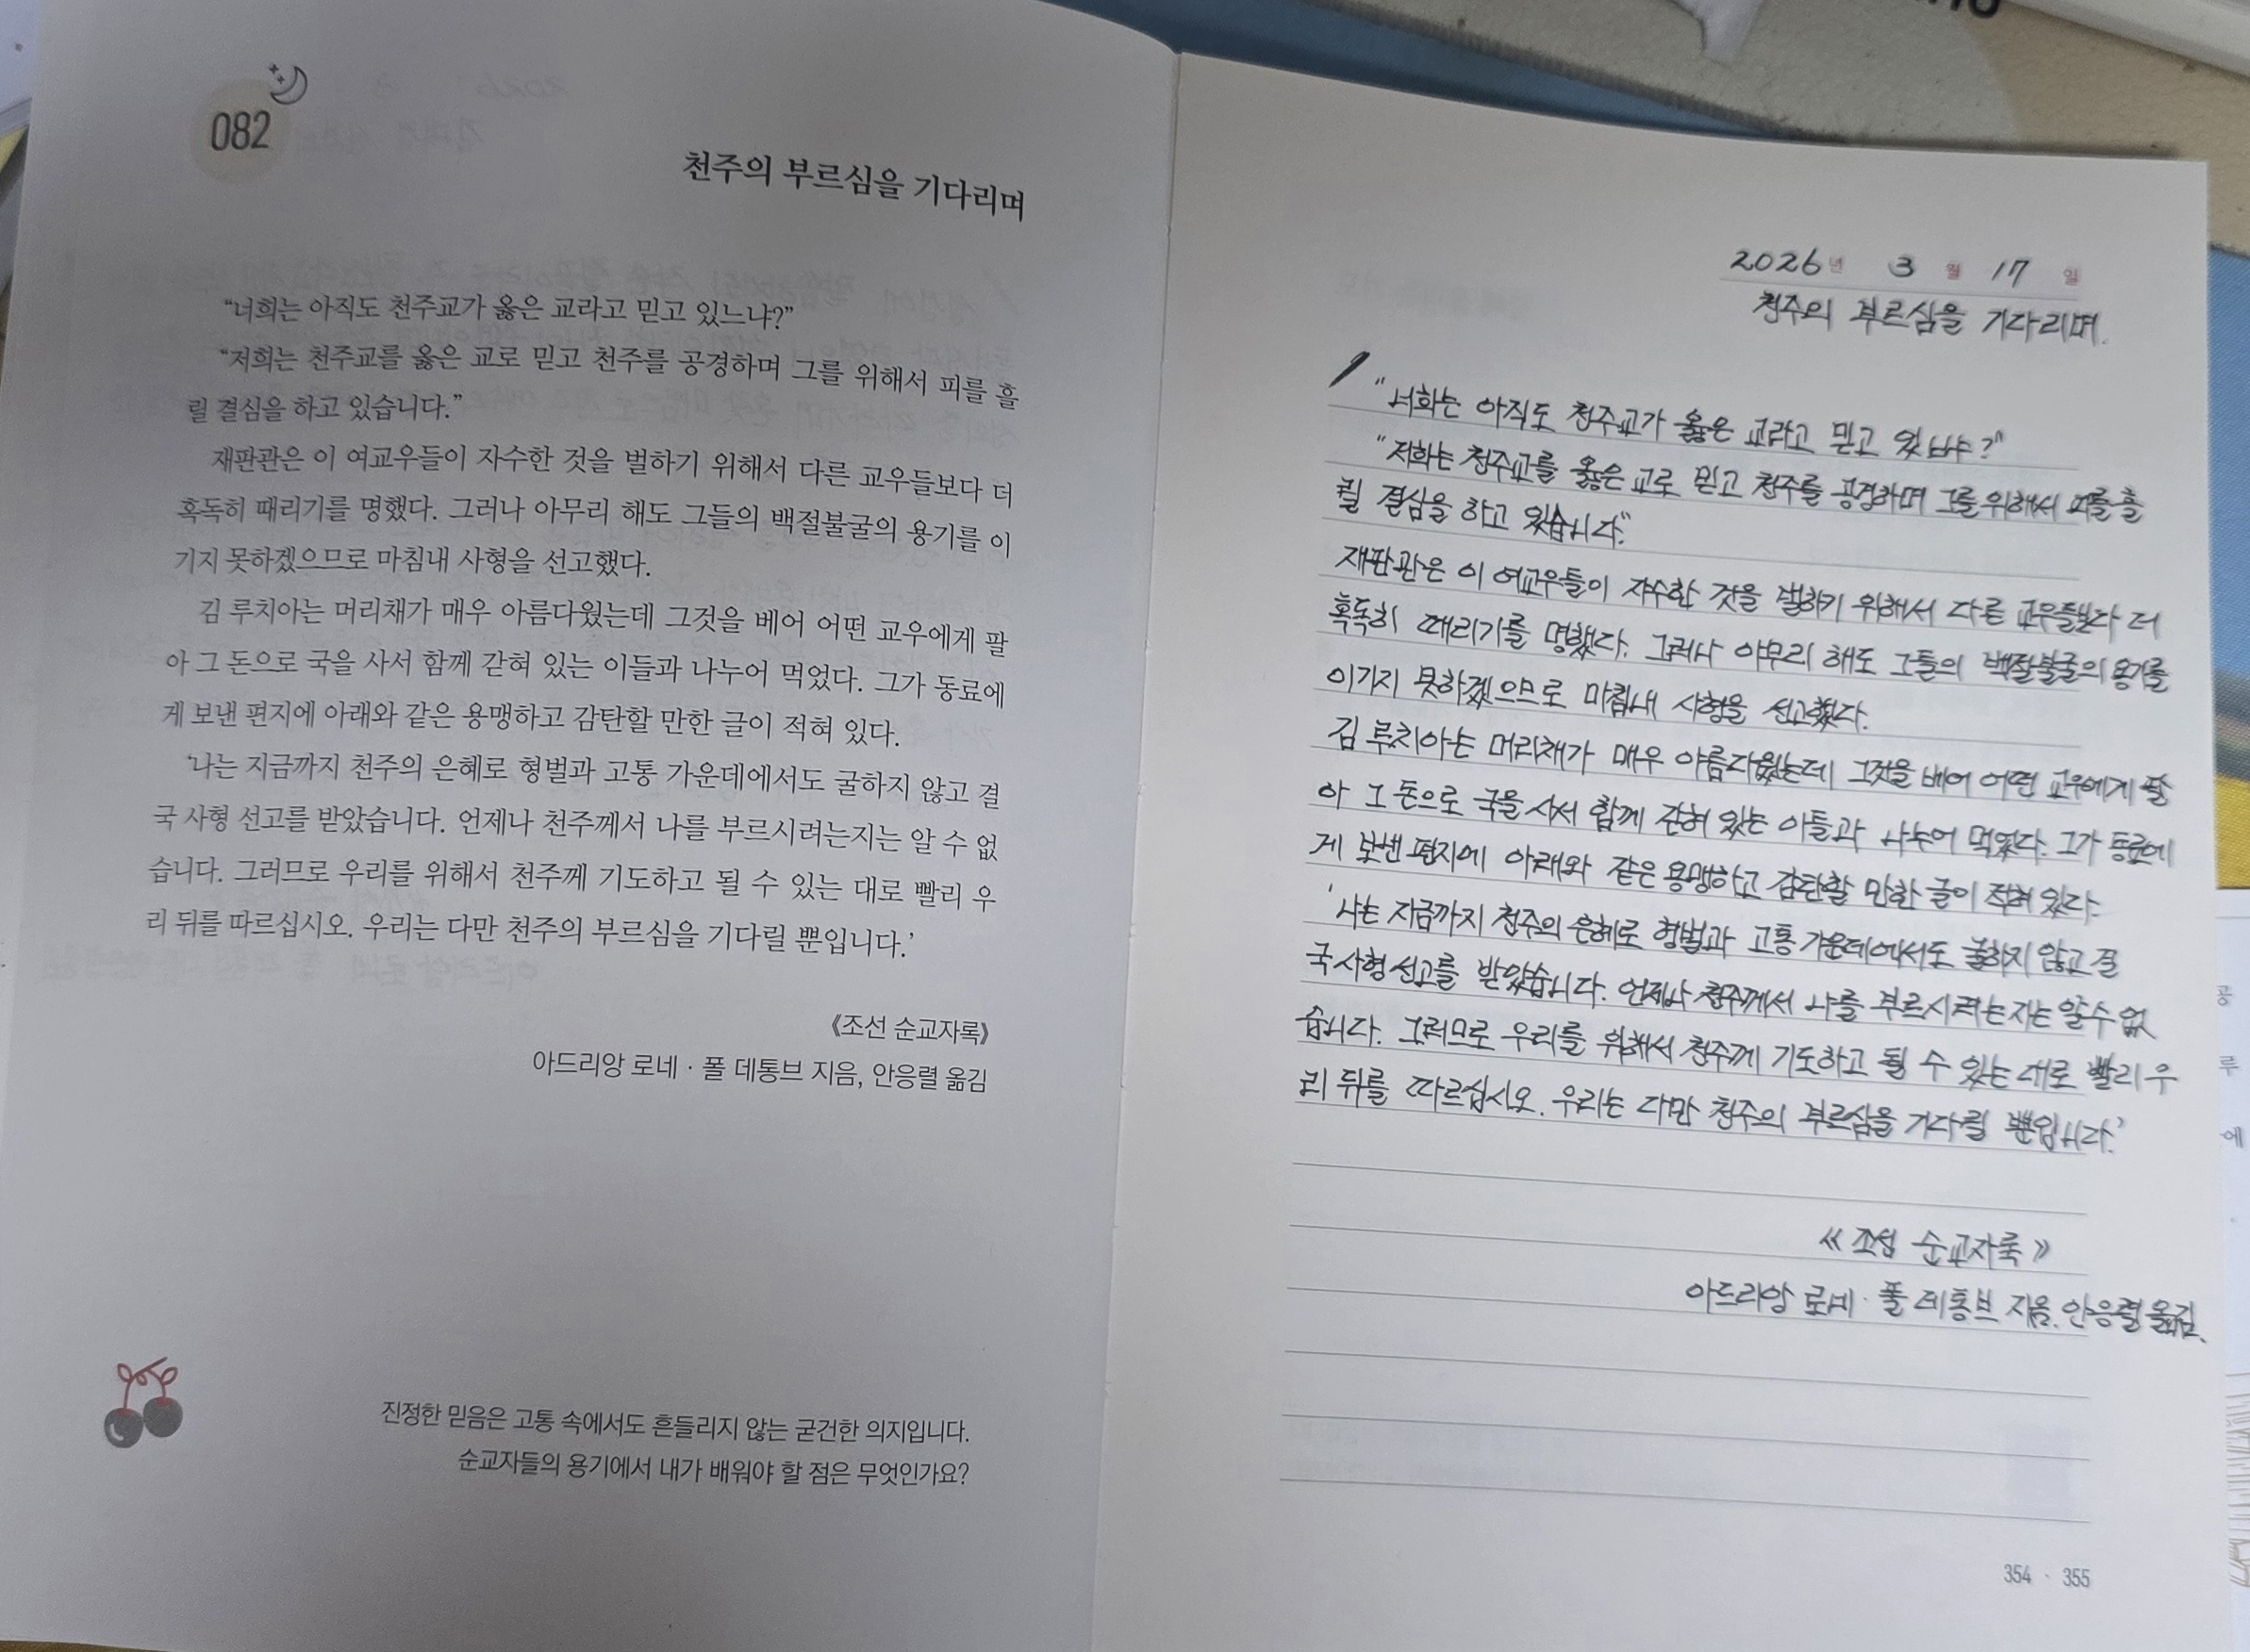 082
천주의 부르심을 기다리며
“너희는 아직도 천주교가 옳은 교라고 믿고 있느냐?”
“저희는 천주교를 옳은 교로 믿고 천주를 공경하며 그를 위해서 피를 흘
릴 결심을 하고 있습니다.”
재판관은 이 여교우들이 자수한 것을 벌하기 위해서 다른 교우들보다 더
혹독히 때리기를 명했다. 그러나 아무리 해도 그들의 백절불굴의 용기를 이
기지 못하겠으므로 마침내 사형을 선고했다.
김 루치아는 머리채가 매우 아름다웠는데 그것을 베어 어떤 교우에게 팔
아 그 돈으로 국을 사서 함께 갇혀 있는 이들과 나누어 먹었다. 그가 동료에
게 보낸 편지에 아래와 같은 용맹하고 감탄할 만한 글이 적혀 있다.
‘나는 지금까지 천주의 은혜로 형벌과 고통 가운데에서도 굴하지 않고 결
국 사형 선고를 받았습니다. 언제나 천주께서 나를 부르시려는지는 알 수 없
습니다. 그러므로 우리를 위해서 천주께 기도하고 될 수 있는 대로 빨리 우
리 뒤를 따르십시오. 우리는 다만 천주의 부르심을 기다릴 뿐입니다.’
《조선 순교자록》
아드리앙 로네 · 폴 데통브 지음, 안응렬 옮김
진정한 믿음은 고통 속에서도 흔들리지 않는 굳건한 의지입니다.
순교자들의 용기에서 내가 배워야 할 점은 무엇인가요?
2026년 3월 17일
천주의 부르심을 기다리며.
“너희는 아직도 천주교가 옳은 교라고 믿고 있냐?”
“저희는 천주교를 옳은 교로 믿고 천주를 공경하며 그를 위해서 피를 흘
릴 결심을 하고 있습니다.”
재판관은 이 여교우들이 자수한 것을 벌하기 위해서 다른 교우들보다 더
혹독히 때리기를 명했다. 그러나 아무리 해도 그들의 백절불굴의 용기를
이기지 못하겠으므로 마침내 사형을 선고했다.
김 루치아는 머리채가 매우 아름다웠는데 그것을 베어 어떤 교우에게 팔
아 그 돈으로 국을 사서 함께 갇혀 있는 이들과 나누어 먹었다. 그가 동료에
게 보낸 편지에 아래와 같은 용맹하고 감탄할 만한 글이 적혀 있다.
‘나는 지금까지 천주의 은혜로 형벌과 고통 가운데에서도 굴하지 않고 결
국 사형 선고를 받았습니다. 언제나 천주께서 나를 부르시려는지는 알 수 없
습니다. 그러므로 우리를 위해서 천주께 기도하고 될 수 있는 대로 빨리 우
리 뒤를 따르십시오. 우리는 다만 천주의 부르심을 기다릴 뿐입니다.’
《조선 순교자록》
아드리앙 로네 · 폴 데통브 지음. 안응렬 옮김.
354 · 355